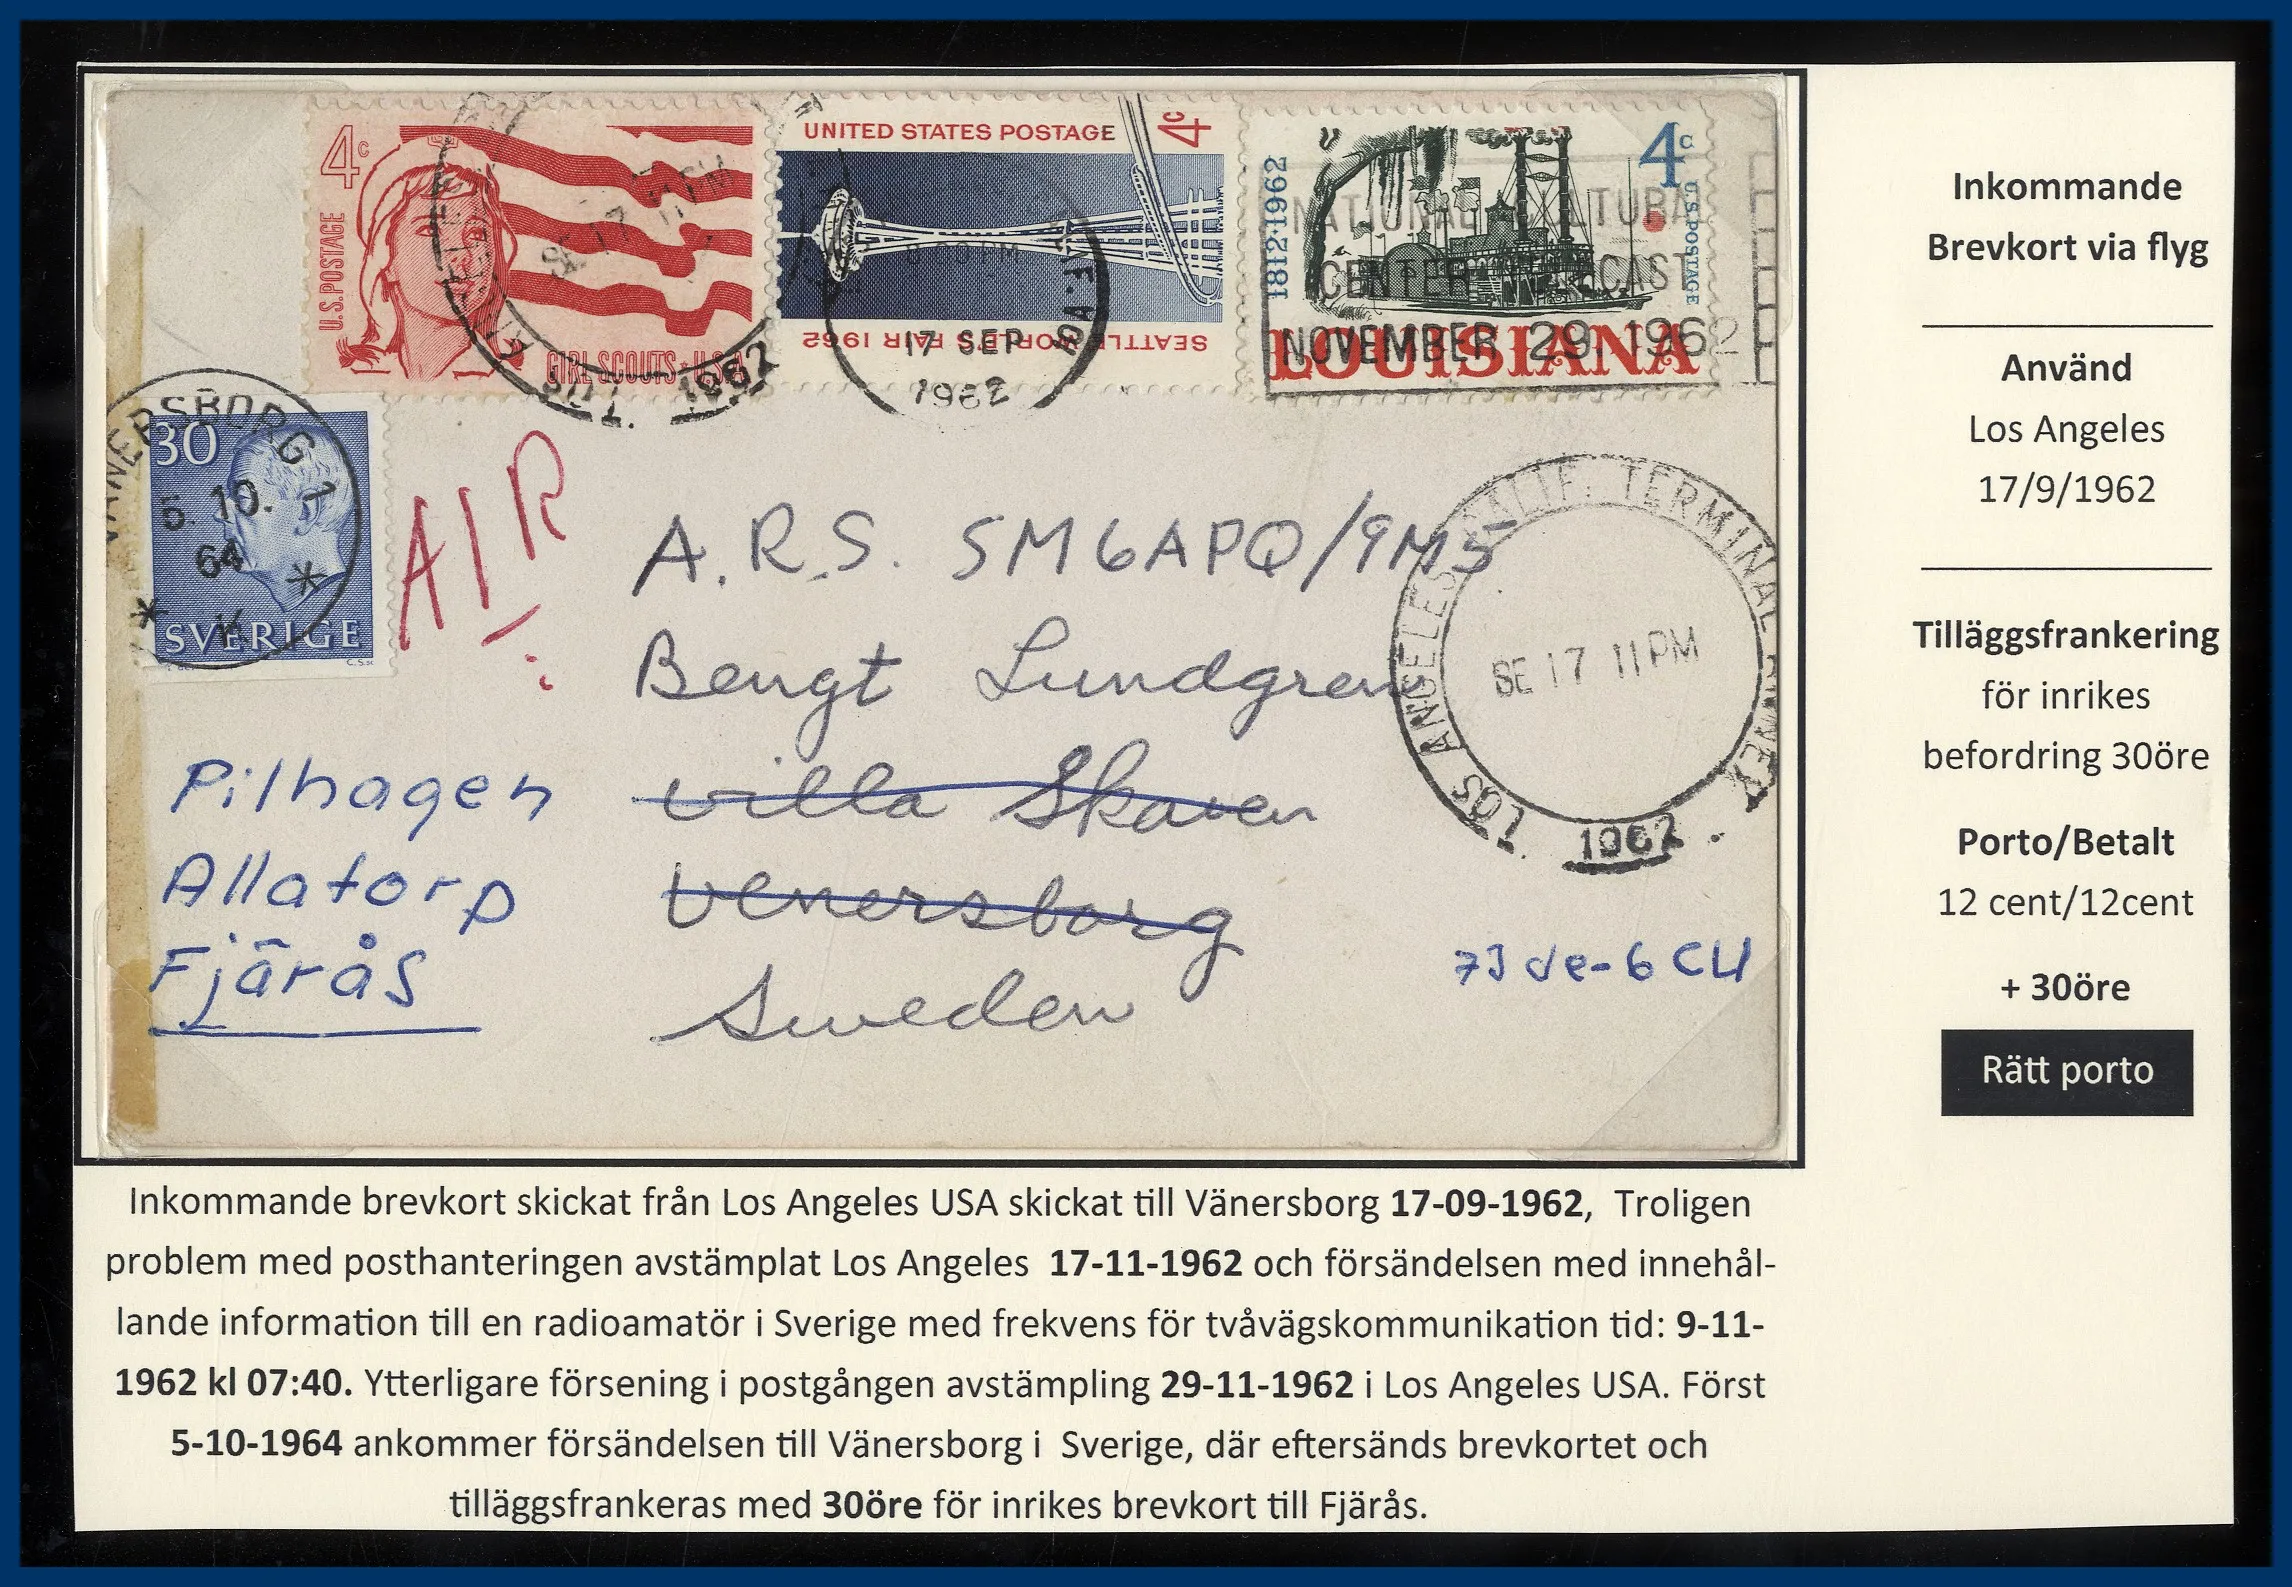 4c
U.S. POSTAGE
GIRL SCOUTS · U.S.A.
SE 17 11 PM
1962
UNITED STATES POSTAGE
4c
SEATTLE WORLD'S FAIR 1962
17 SEP
1962
1812·1962
4c
U.S. POSTAGE
LOUISIANA
NATIONAL CULTURAL
CENTER TELECAST
NOVEMBER 29. 1962
VÄNERSBORG 1
5. 10.
64
* K *
30
SVERIGE
AIR
A.R.S. SM6APQ/9M5
Bengt Lundgren
Villa Skaven
Venersborg
Sweden
Pilhagen
Allatorp
Fjärås
LOS ANGELES CALIF. TERMINAL ANNEX
SE 17 11 PM
1962
73 de -6CU
Inkommande
Brevkort via flyg
Använd
Los Angeles
17/9/1962
Tilläggsfrankering
för inrikes
befordring 30öre
Porto/Betalt
12 cent/12cent
+ 30öre
Rätt porto
Inkommande brevkort skickat från Los Angeles USA skickat till Vänersborg 17-09-1962, Troligen
problem med posthanteringen avstämplat Los Angeles 17-11-1962 och försändelsen med innehål-
lande information till en radioamatör i Sverige med frekvens för tvåvägskommunikation tid: 9-11-
1962 kl 07:40. Ytterligare försening i postgången avstämpling 29-11-1962 i Los Angeles USA. Först
5-10-1964 ankommer försändelsen till Vänersborg i Sverige, där eftersänds brevkortet och
tilläggsfrankeras med 30öre för inrikes brevkort till Fjärås.